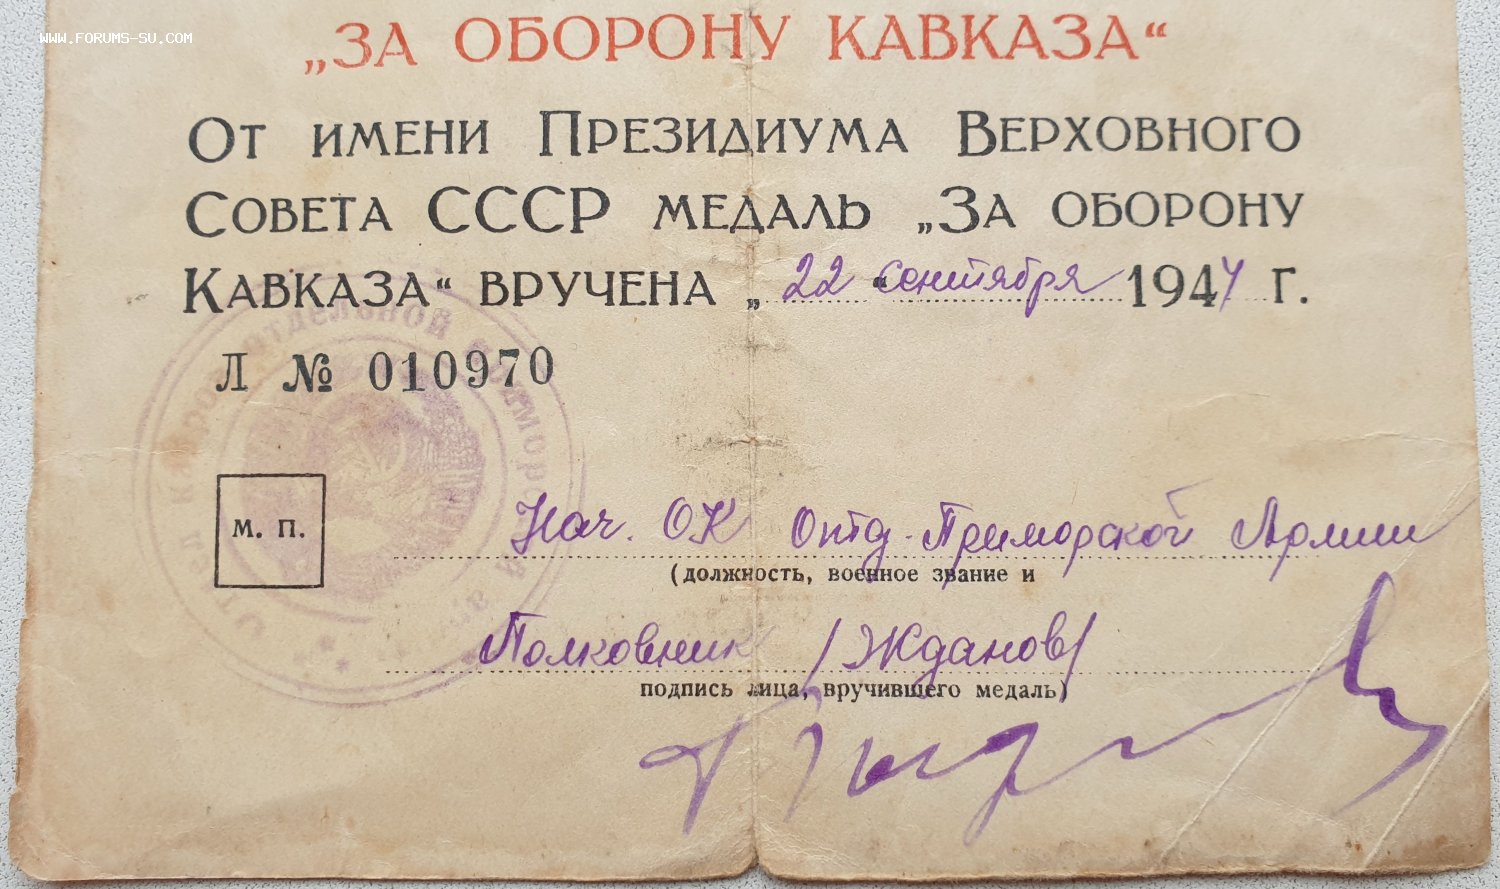 WWW.FORUMS-SU.COM
„ЗА ОБОРОНУ КАВКАЗА“
От имени Президиума Верховного
Совета СССР медаль „За оборону
Кавказа“ вручена „22“ сентября 1944 г.
Л № 010970
Отдел кадров отдельной Приморской
М. П.
Нач. ОК Отд. Приморской Армии
(должность, военное звание и
Полковник /Жданов/
подпись лица, вручившего медаль)